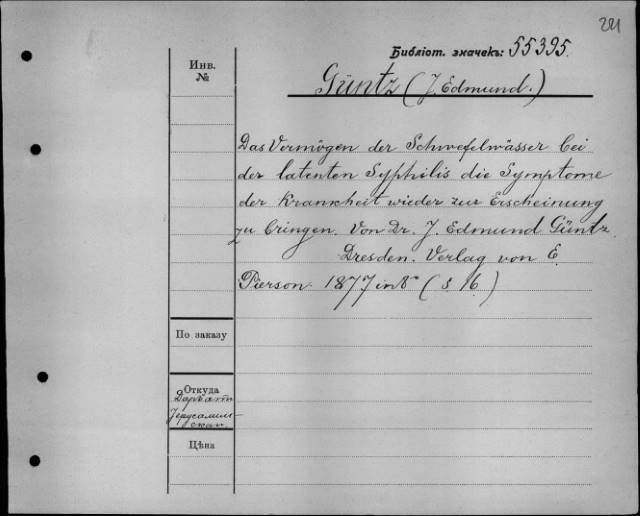 221
Библіот. значекъ: 55395.
Инв.
№
Güntz (J. Edmund.)
Das Vermögen der Schwefelwässer bei
der latenten Syphilis die Symptome
der Krankheit wieder zur Erscheinung
zu bringen. Von Dr. J. Edmund Güntz.
Dresden. Verlag von E.
Pierson. 1877 in 8° (S. 16.)
По заказу
Откуда
Іерусалим-
Цѣна